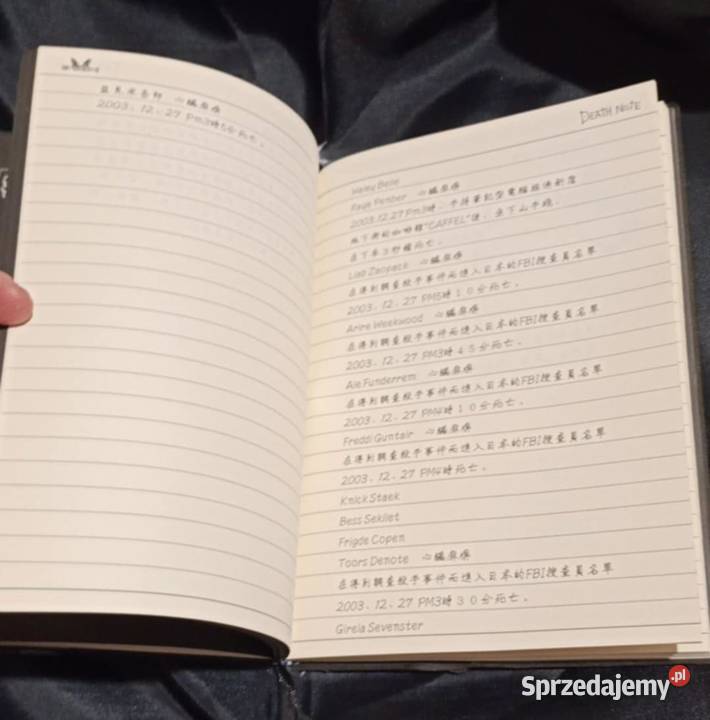 心臟麻痺
2003、12、27 PM3時5分死亡。
DEATH NOTE
Haley Belle
Raye Penber 心臟麻痺
2003.12.27 PM3時,手持筆記型電腦
地下街的咖啡館"CAFFEL"
死亡。
Lian Zaopack 心臟麻痺
在得到調查殺手事件而進入日本的FBI搜查員名單
2003、12、27 PM5時10分死亡。
Arire Weekwood 心臟麻痺
在得到調查殺手事件而進入日本的FBI搜查員名單
2003、12、27 PM3時45分死亡。
Ale Funderrem 心臟麻痺
在得到調查殺手事件而進入日本的FBI搜查員名單
2003、12、27 PM4時10分死亡。
Freddi Guntair 心臟麻痺
在得到調查殺手事件而進入日本的FBI搜查員名單
2003、12、27 PM4時死亡。
Knick Staek
Bess Sekllet
Frigde Copen
Toors Denote 心臟麻痺
在得到調查殺手事件而進入日本的FBI搜查員名單
2003、12、27 PM3時30分死亡。
Girela Sevenster
Sprzedajemy.pl